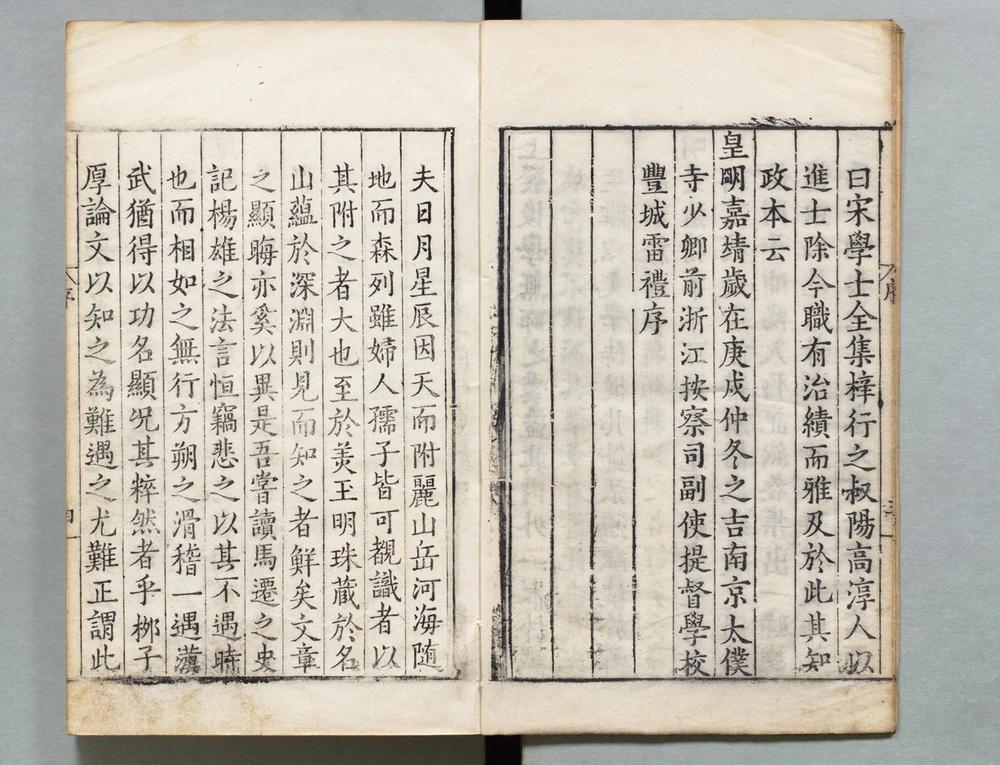 曰宋學士全集梓行之叔陽高淳人以
進士除今職有治績而雅及於此其知
政本云
皇明嘉靖歲在庚戌仲冬之吉南京太僕
寺少卿前浙江按察司副使提督學校
豐城雷禮序
夫日月星辰因天而附麗山岳河海随
地而森列雖婦人孺子皆可覩識者以
其附之者大也至於美玉明珠蔵於名
山蘊於深淵則見而知之者鮮矣文章
之顯晦亦奚以異是吾嘗讀馬遷之史
記楊雄之法言恒竊悲之以其不遇時
也而相如之無行方朔之滑稽一遇漢
武猶得以功名顯况其粹然者乎栁子
厚論文以知之為難遇之尤難正謂此
序
四